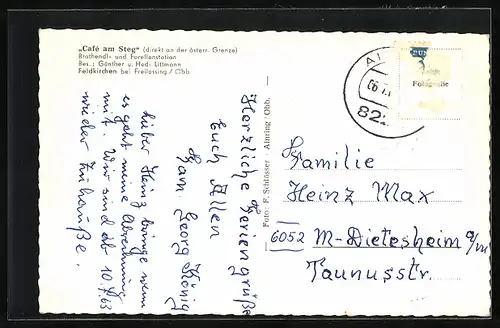 „Café am Steg“ (direkt an der österr. Grenze)
Brathendl- und Forellenstation
Bes.: Günther u. Hedi Littmann
Feldkirchen bei Freilassing / Obb.
Herzliche Feriengrüße
Euch Allen
Fam. Georg König
Lieber Heinz bringe wenn
es geht meine Abrechnung
mit. Wir sind ab 10.7.63
wieder Zuhause.
Foto: F. Schlösser - Ainring/Obb.
Fotografie
82
Familie
Heinz Max
6052 M-Dietesheim a/m
Taunusstr.